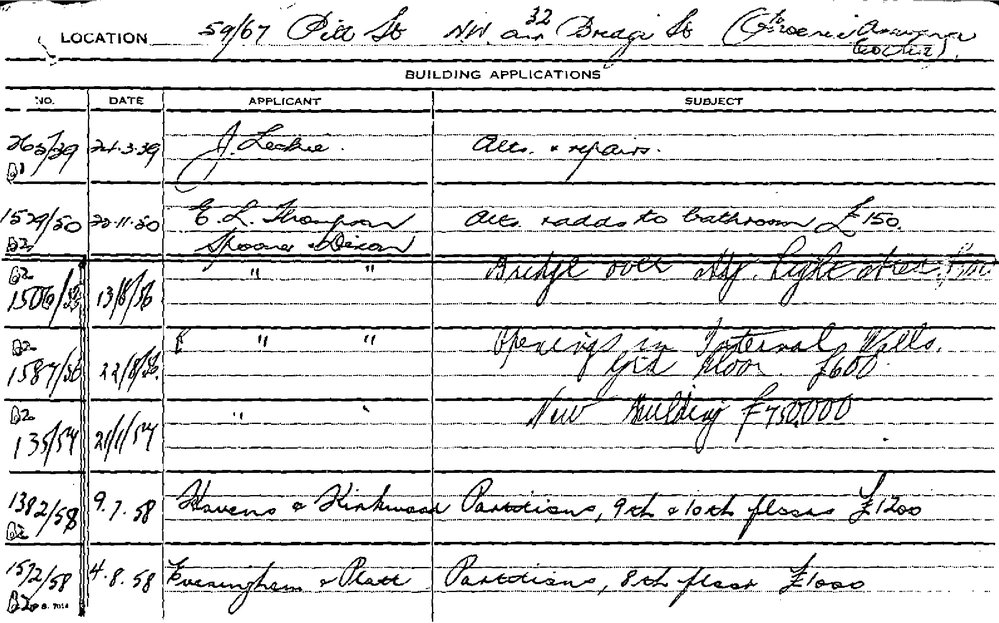 LOCATION 59/67 Pitt St N.W. cnr 32 Bridge St
BUILDING APPLICATIONS
NO. DATE APPLICANT SUBJECT
263/39 24.3.39 J. Leckie. Alts. & repairs.
B1
1529/50 22.11.50 E. L. Thompson Alts. & adds to bathroom £150.
B2 Spooner & Dixon
B2 " " Bridge over Adj. light area.
1506/56 13/8/56
B2 " " Openings in Internal Walls.
1587/56 22/8/56. Grd Floor £600
B2 " " New Building £750000
135/57 21/1/57
1382/58 9.7.58 Havens & Kirkwood Partitions, 9th & 10th floors £1200
B2
1572/58 4.8.58 Everingham & Platt Partitions, 8th floor £1000
B2